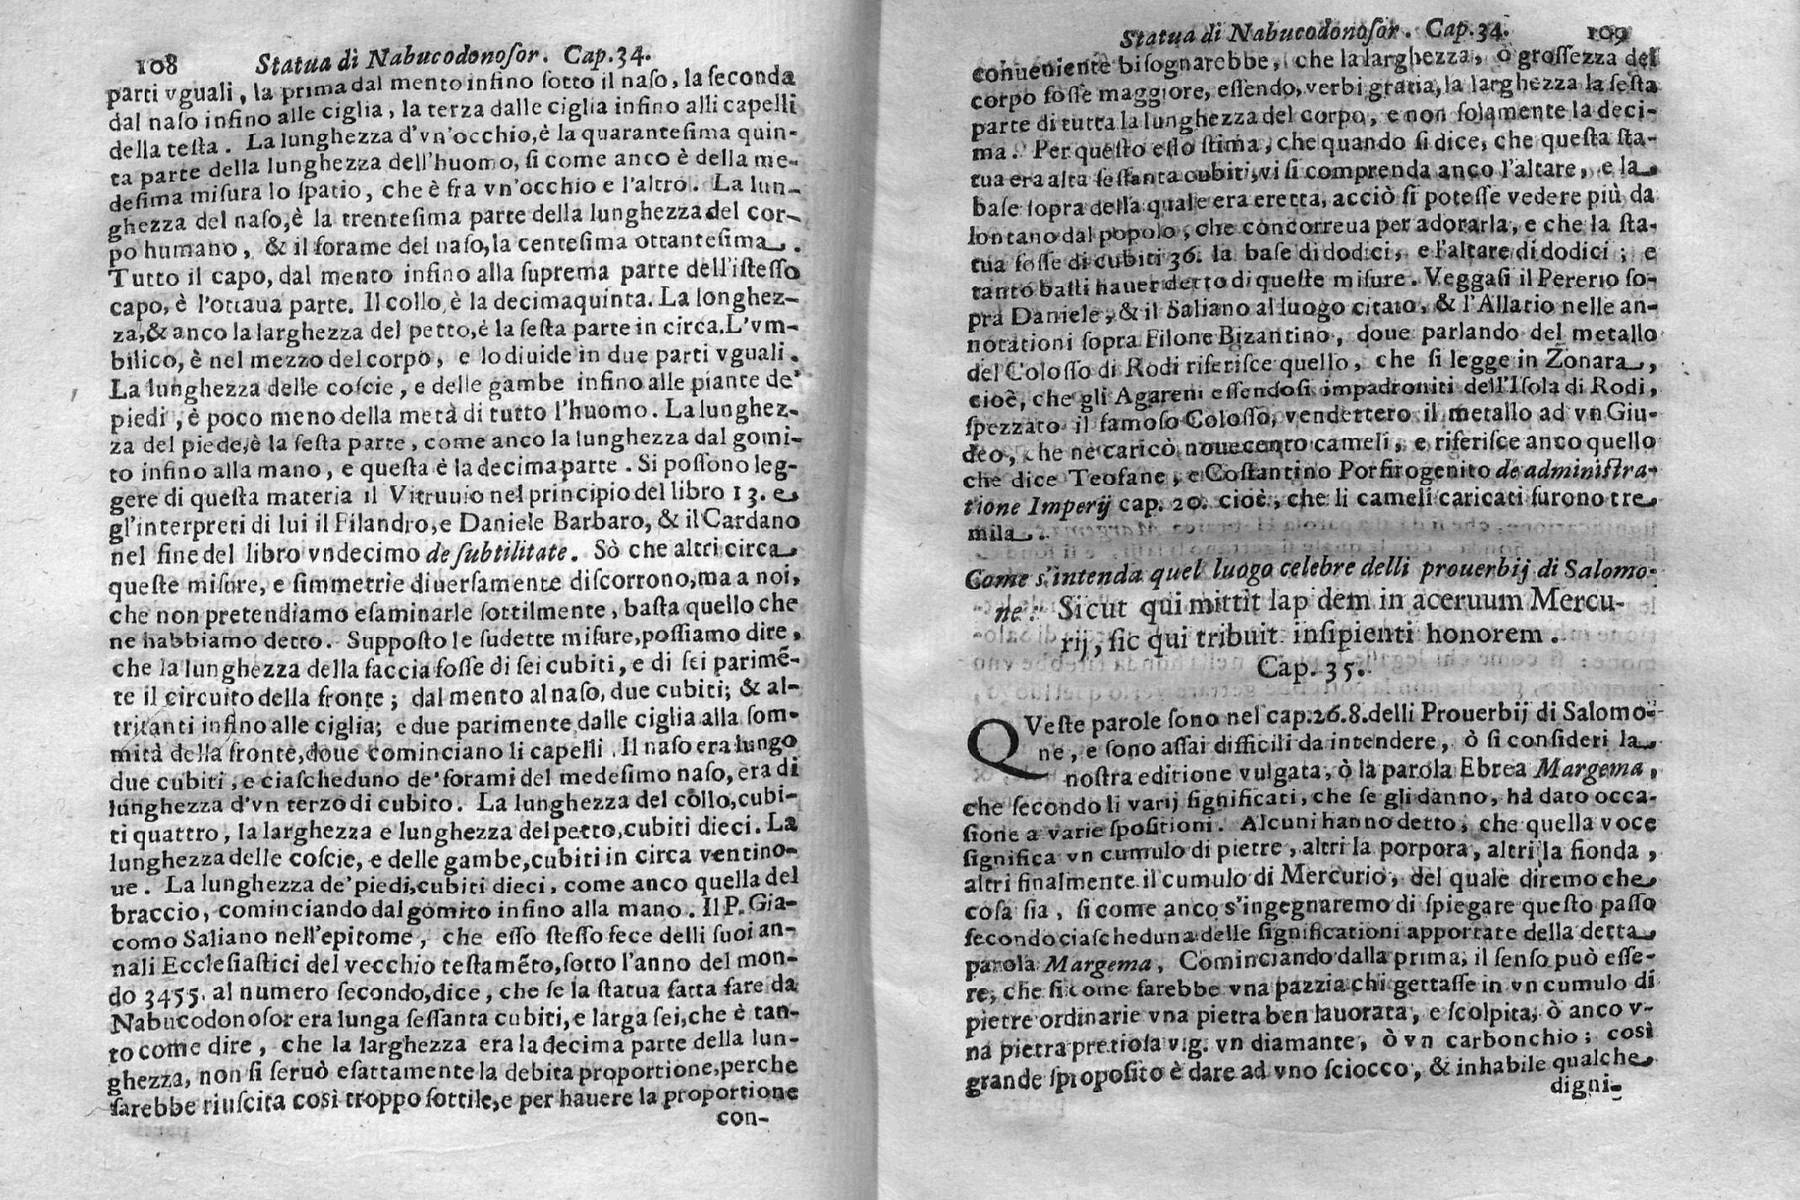 108 Statua di Nabucodonoſor. Cap.34.
parti vguali, la prima dal mento infino ſotto il naſo, la ſeconda
dal naſo infino alle ciglia, la terza dalle ciglia infino alli capelli
della teſta. La lunghezza d'vn'occhio, è la quarantesima quin-
ta parte della lunghezza dell'huomo, ſi come anco è della me-
deſima miſura lo ſpatio, che è fra vn'occhio e l'altro. La lun-
ghezza del naſo, è la trenteſima parte della lunghezza del cor-
po humano, & il forame del naſo, la centeſima ottanteſima.
Tutto il capo, dal mento infino alla ſuprema parte dell'iſteſſo
capo, è l'ottaua parte. Il collo, è la decimaquinta. La longhez-
za, & anco la larghezza del petto, è la ſeſta parte in circa. L'vm-
bilico, è nel mezzo del corpo, e lo diuide in due parti vguali.
La lunghezza delle coſcie, e delle gambe infino alle piante de'
piedi, è poco meno della metà di tutto l'huomo. La lunghez-
za del piede, è la ſeſta parte, come anco la lunghezza dal gomi-
to infino alla mano, e queſta è la decima parte. Si poſſono leg-
gere di queſta materia il Vitruuio nel principio del libro 13. e
gl'interpreti di lui il Filandro, e Daniele Barbaro, & il Cardano
nel fine del libro vndecimo de ſubtilitate. Sò che altri circa
queſte miſure, e ſimmetrie diuerſamente diſcorrono, ma a noi,
che non pretendiamo eſaminarle ſottilmente, baſta quello che
ne habbiamo detto. Suppoſto le ſudette miſure, poſſiamo dire,
che la lunghezza della faccia foſſe di ſei cubiti, e di ſei parimẽ-
te il circuito della fronte; dal mento al naſo, due cubiti; & al-
tritanti infino alle ciglia; e due parimente dalle ciglia alla ſom-
mità della fronte, doue cominciano li capelli. Il naſo era lungo
due cubiti, e ciaſcheduno de' forami del medeſimo naſo, era di
lunghezza d'vn terzo di cubito. La lunghezza del collo, cubi-
ti quattro, la larghezza e lunghezza del petto, cubiti dieci. La
lunghezza delle coſcie, e delle gambe, cubiti in circa ventino-
ue. La lunghezza de' piedi, cubiti dieci, come anco quella del
braccio, cominciando dal gomito infino alla mano. Il P. Gia-
como Saliano nell'epitome, che eſſo ſteſſo fece delli ſuoi an-
nali Eccleſiaſtici del vecchio teſtamẽto, ſotto l'anno del mon-
do 3455. al numero ſecondo, dice, che ſe la ſtatua fatta fare da
Nabucodonoſor era lunga ſeſſanta cubiti, e larga ſei, che è tan-
to come dire, che la larghezza era la decima parte della lun-
ghezza, non ſi ſeruò eſattamente la debita proportione, perche
ſarebbe riuſcita così troppo ſottile, e per hauere la proportione
con-
Statua di Nabucodonoſor. Cap.34. 109
conueniente biſognarebbe, che la larghezza, ò groſſezza del
corpo foſſe maggiore, eſſendo, verbi gratia, la larghezza la ſeſta
parte di tutta la lunghezza del corpo, e non ſolamente la deci-
ma. Per queſto eſſo ſtima, che quando ſi dice, che queſta ſta-
tua era alta ſeſſanta cubiti, vi ſi comprenda anco l'altare, e la
baſe ſopra della quale era eretta, acciò ſi poteſſe vedere più da
lontano dal popolo, che concorreua per adorarla, e che la ſta-
tua foſſe di cubiti 36. la baſe di dodici, e l'altare di dodici; e
tanto baſti hauer detto di queſte miſure. Veggaſi il Pererio ſo-
pra Daniele, & il Saliano al luogo citato, & l'Allatio nelle an-
notationi ſopra Filone Bizantino, doue parlando del metallo
del Coloſſo di Rodi riferiſce quello, che ſi legge in Zonara,
cioè, che gli Agareni eſſendoſi impadroniti dell'Iſola di Rodi,
ſpezzato il famoſo Coloſſo, vendettero il metallo ad vn Giu-
deo, che ne caricò nouecento cameli, e riferiſce anco quello
che dice Teofane, e Coſtantino Porfirogenito de adminiſtra-
tione Imperij cap. 20. cioè, che li cameli caricati furono tre
mila.
Come s'intenda quel luogo celebre delli prouerbij di Salomo-
ne: Sicut qui mittit lap dem in aceruum Mercu-
rij, ſic qui tribuit inſipienti honorem.
Cap. 35.
QVeſte parole ſono nel cap.26.8. delli Prouerbij di Salomo-
ne, e ſono aſſai difficili da intendere, ò ſi conſideri la
noſtra editione vulgata, ò la parola Ebrea Margema,
che ſecondo li varij ſignificati, che ſe gli danno, hà dato occa-
ſione a varie ſpoſitioni. Alcuni hanno detto, che quella voce
ſignifica vn cumulo di pietre, altri la porpora, altri la fionda,
altri finalmente il cumulo di Mercurio, del quale diremo che
coſa ſia, ſi come anco s'ingegnaremo di ſpiegare queſto paſſo
ſecondo ciaſcheduna delle ſignificationi apportate della detta
parola Margema, Cominciando dalla prima, il ſenſo può eſſe-
re, che ſi come ſarebbe vna pazzia chi gettaſſe in vn cumulo di
pietre ordinarie vna pietra ben lauorata, e ſcolpita, ò anco v-
na pietra pretioſa v.g. vn diamante, ò vn carbonchio; così
grande ſpropoſito è dare ad vno ſciocco, & inhabile qualche
digni-